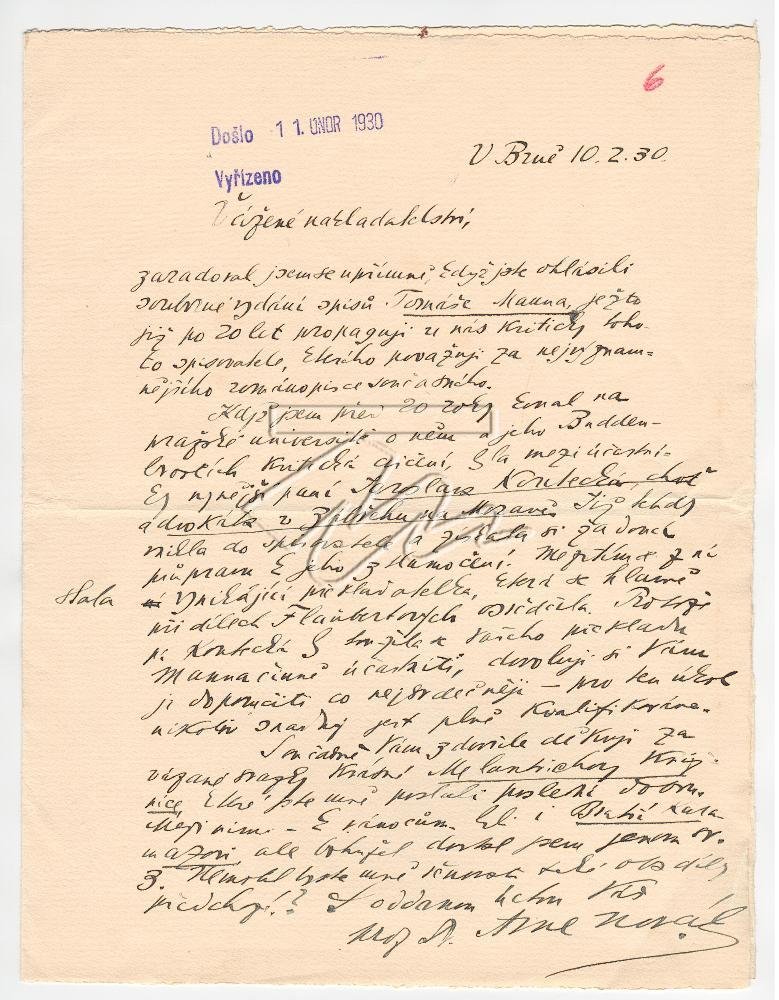 6
Došlo 11. ÚNOR 1930
Vyřízeno
V Brně 10.2.30.
Vážené nakladatelství,
zaradoval jsem se upřímně, když jste ohlásili
souborné vydání spisů Tomáše Manna, ježto
již po 20 let propaguji u nás kriticky toho-
to spisovatele, kterého považuji za nejvýznam-
nějšího románopisce současného.
Když jsem před 20 roky konal na
pražské universitě o něm a jeho Budden-
brocích kritická cvičení, byla mezi účastní-
ky nynější paní Jaroslava choť
advokáta v na Moravě. Již tehdy
vnikla do spisovatele a získala si za
průpravu k jeho tlumočení. Mezitím z ní
stala vynikající překladatelka, která se hlavně
při dílech Flaubertových osvědčila. Protože
pí by toužila se Vašeho překladu
Manna činně účastniti, dovoluji si Vám
ji doporučiti co nejsrdečněji – pro ten úkol
nikoliv snadný jest plně kvalifikována.
Současně Vám zdvořile děkuji za
vázané svazky krásné Melantrichovy Knižnice,
které jste mně poslali poslední dobou.
Mezi nimi – k vánocům – byli i Bratři Kara-
mazovi, ale bohužel dostal jsem jenom sv.
3. Nemohl byste mně věnovat také oba díly
předchozí? S oddanou úctou Váš
prof. Dr. Arne Novák